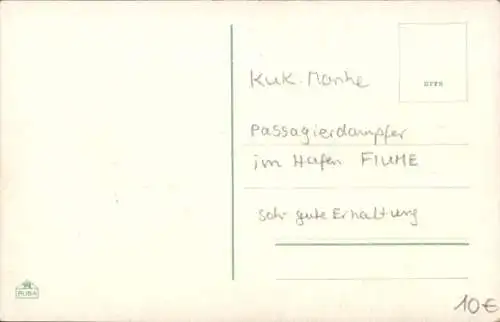 KuK. Marine
Passagierdampfer
im Hafen FIUME
sehr gute Erhaltung
RUBA
10€